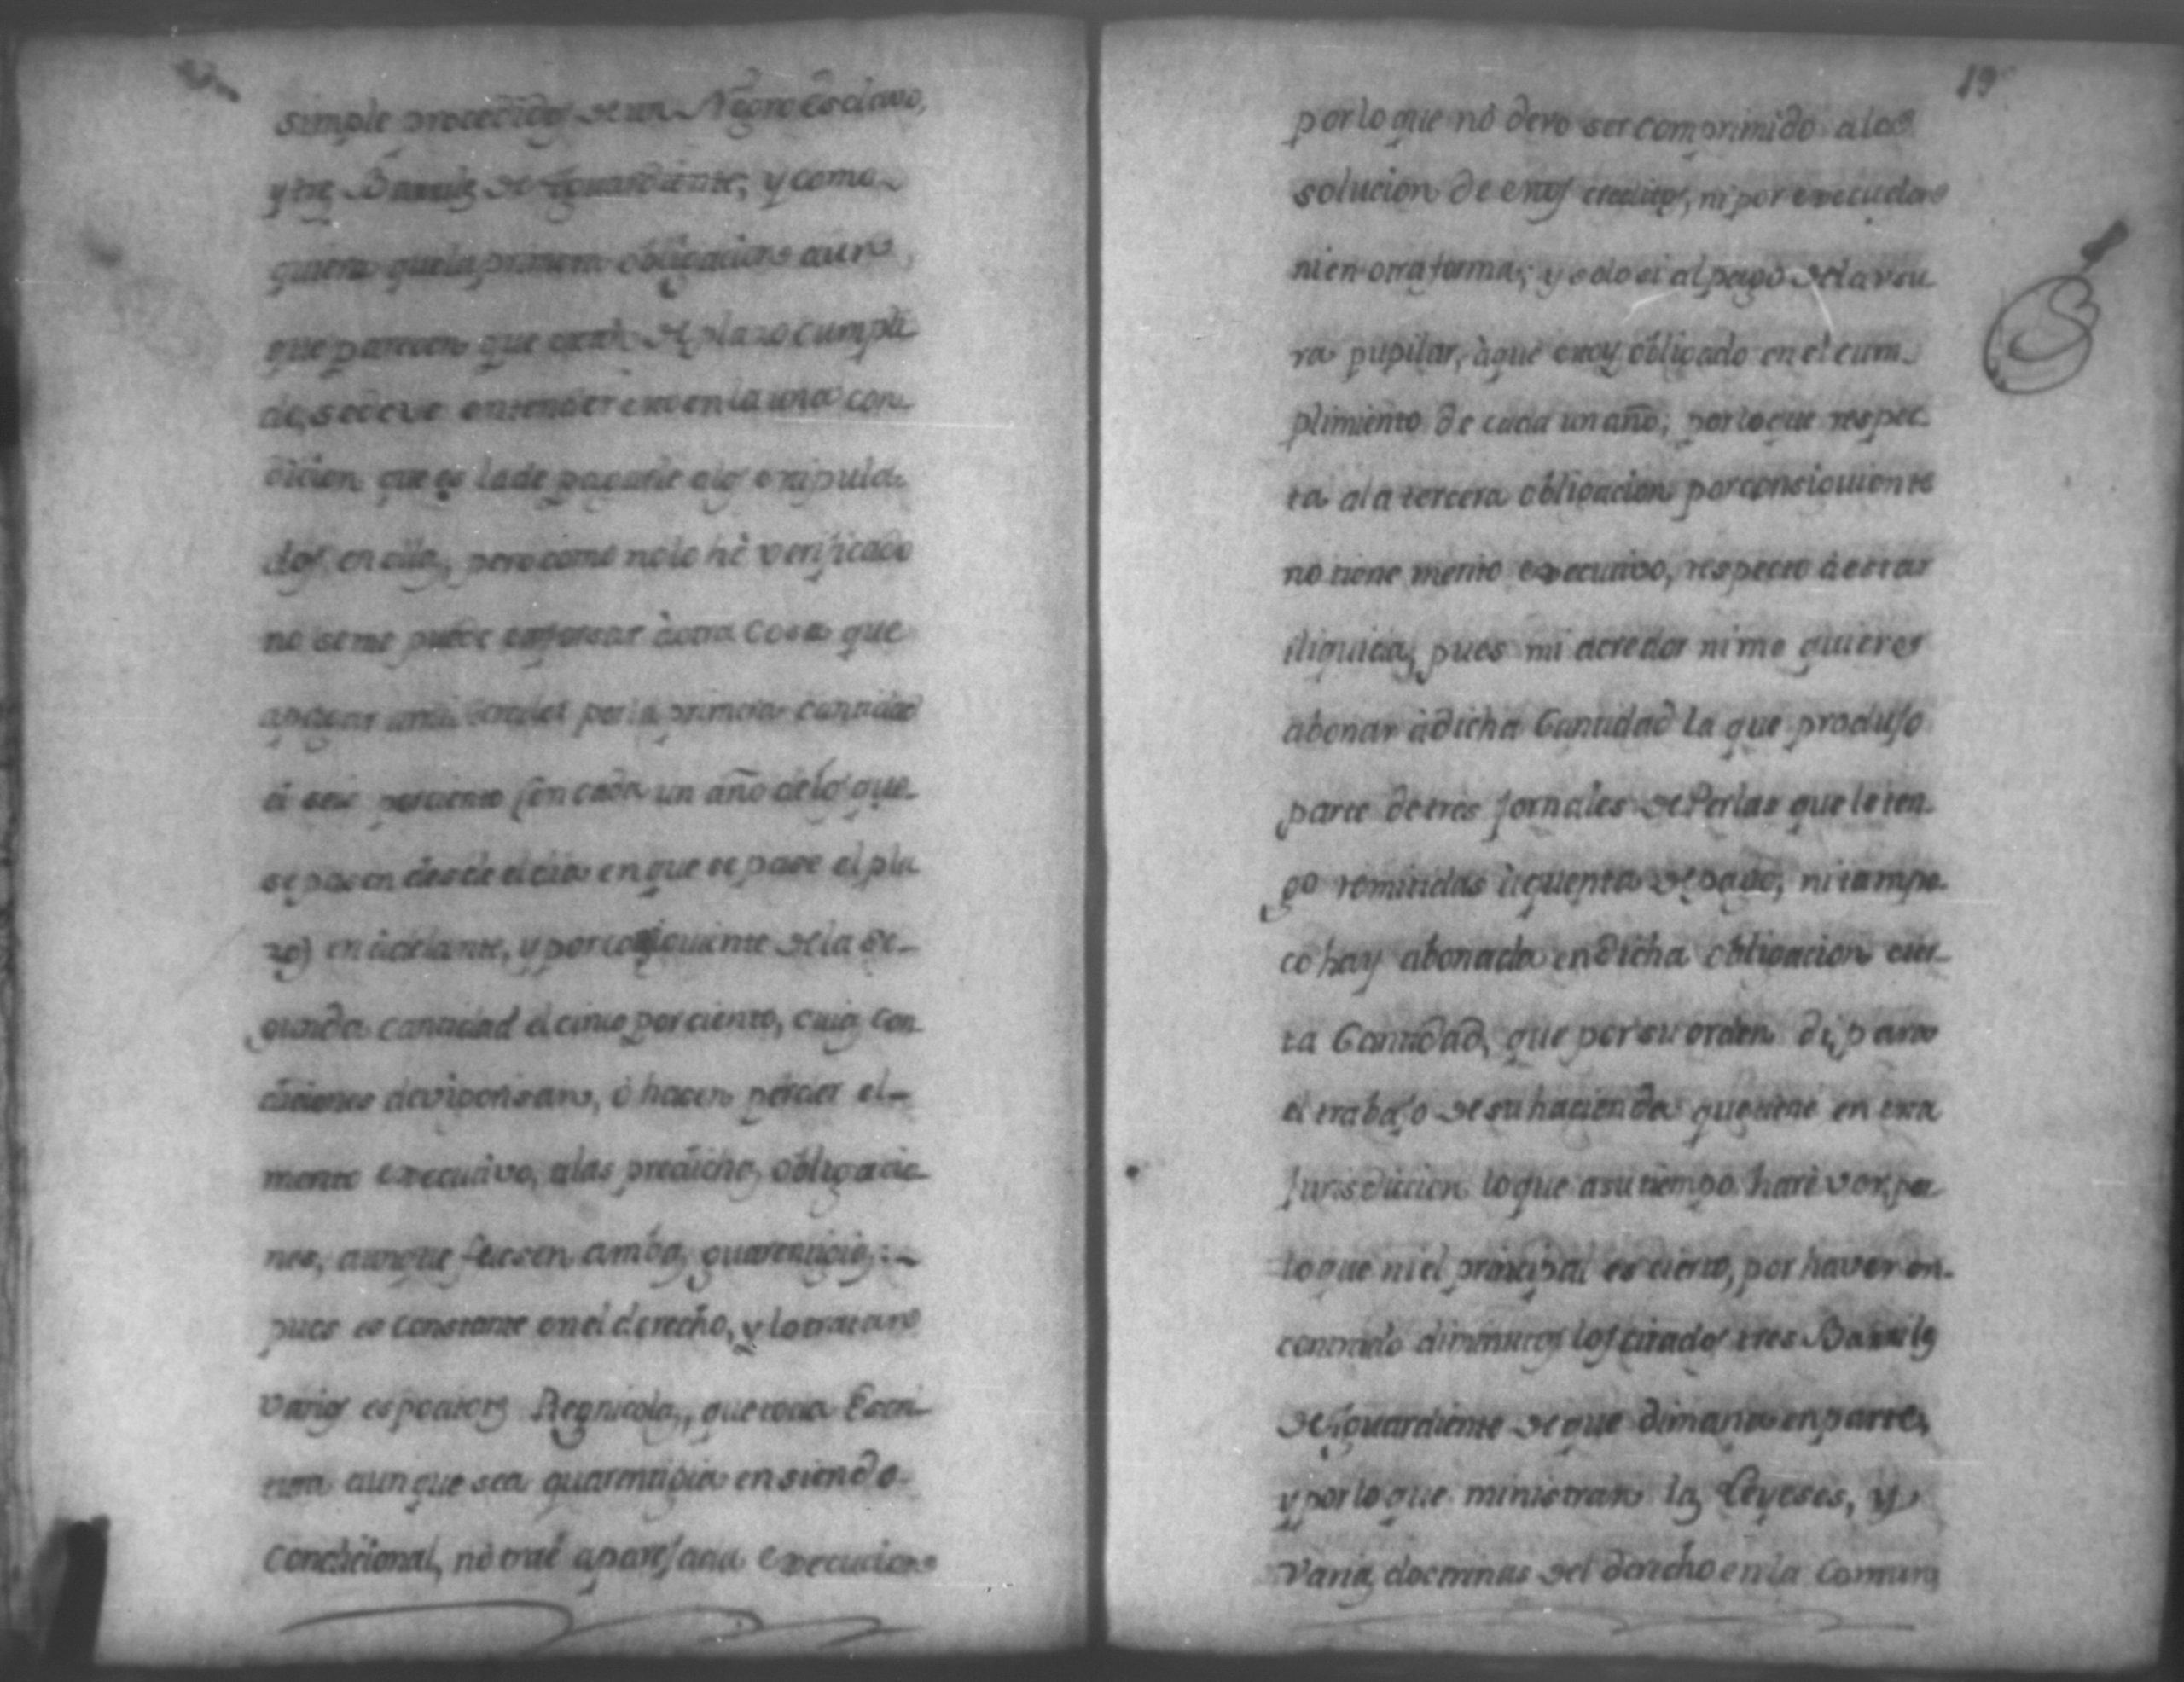 simple procedido de un Negro esclavo,
y tres Barriles de Aguardiente; y como
quiera que la primera obligacion aun
que parecen que eran de plazo cumpli
do, se deve entender en la una con
dicion que es la de pagarle los estipula
dos en ella, pero como no lo hè verificado
no se me puede à otra cosa que
apagar por la primera cantidad
el seis porciento (en cada un año de los que
se pasen desde el dia en que se pase el pla
zo) en adelante, y por consiguiente de la se-
gunda cantidad el cinco por ciento, cuias con
diciones devigorisan, ò hacen perder el-
merito executivo, a las predichas obligacio
nes, aunque fuesen ambas guarentigias:
pues es constante en el derecho, y lo tratan
varios espositores Regnicolas, que toda Escri-
tura aunque sea guarentigia en siendo
condicional, nò traè aparejada execucion
19
por lo que nò devo ser comprimido a la
solucion de esos creditos, ni por executor
ni en otra forma; y solo si al pago de la vsu
ra pupilar, à que estoy obligado en el cum
plimiento de cada un año; por lo que respec
ta a la tercera obligacion por consiguiente
no tiene merito executivo, respecto à estar
iliquida, pues mi acredor ni me quiere
abonar à dicha Cantidad la que produjo
parte de tres jornales de Perlas que le ten
go remitidas à quenta de pago, ni tampo-
co hay abonada en dicha obligacion cier-
ta Cantidad, que por su orden di, para
el trabajo de su hacienda que tiene en esta
Jurisdiccion lo que a su tiempo harè ver, por
lo que ni el principal es cierto, por haver en-
contrado diminutos los citados tres Barriles
de Aguardiente de que dimana en parte,
y por lo que ministran las Leyeses, y
Varias doctrinas del derecho en la Comun